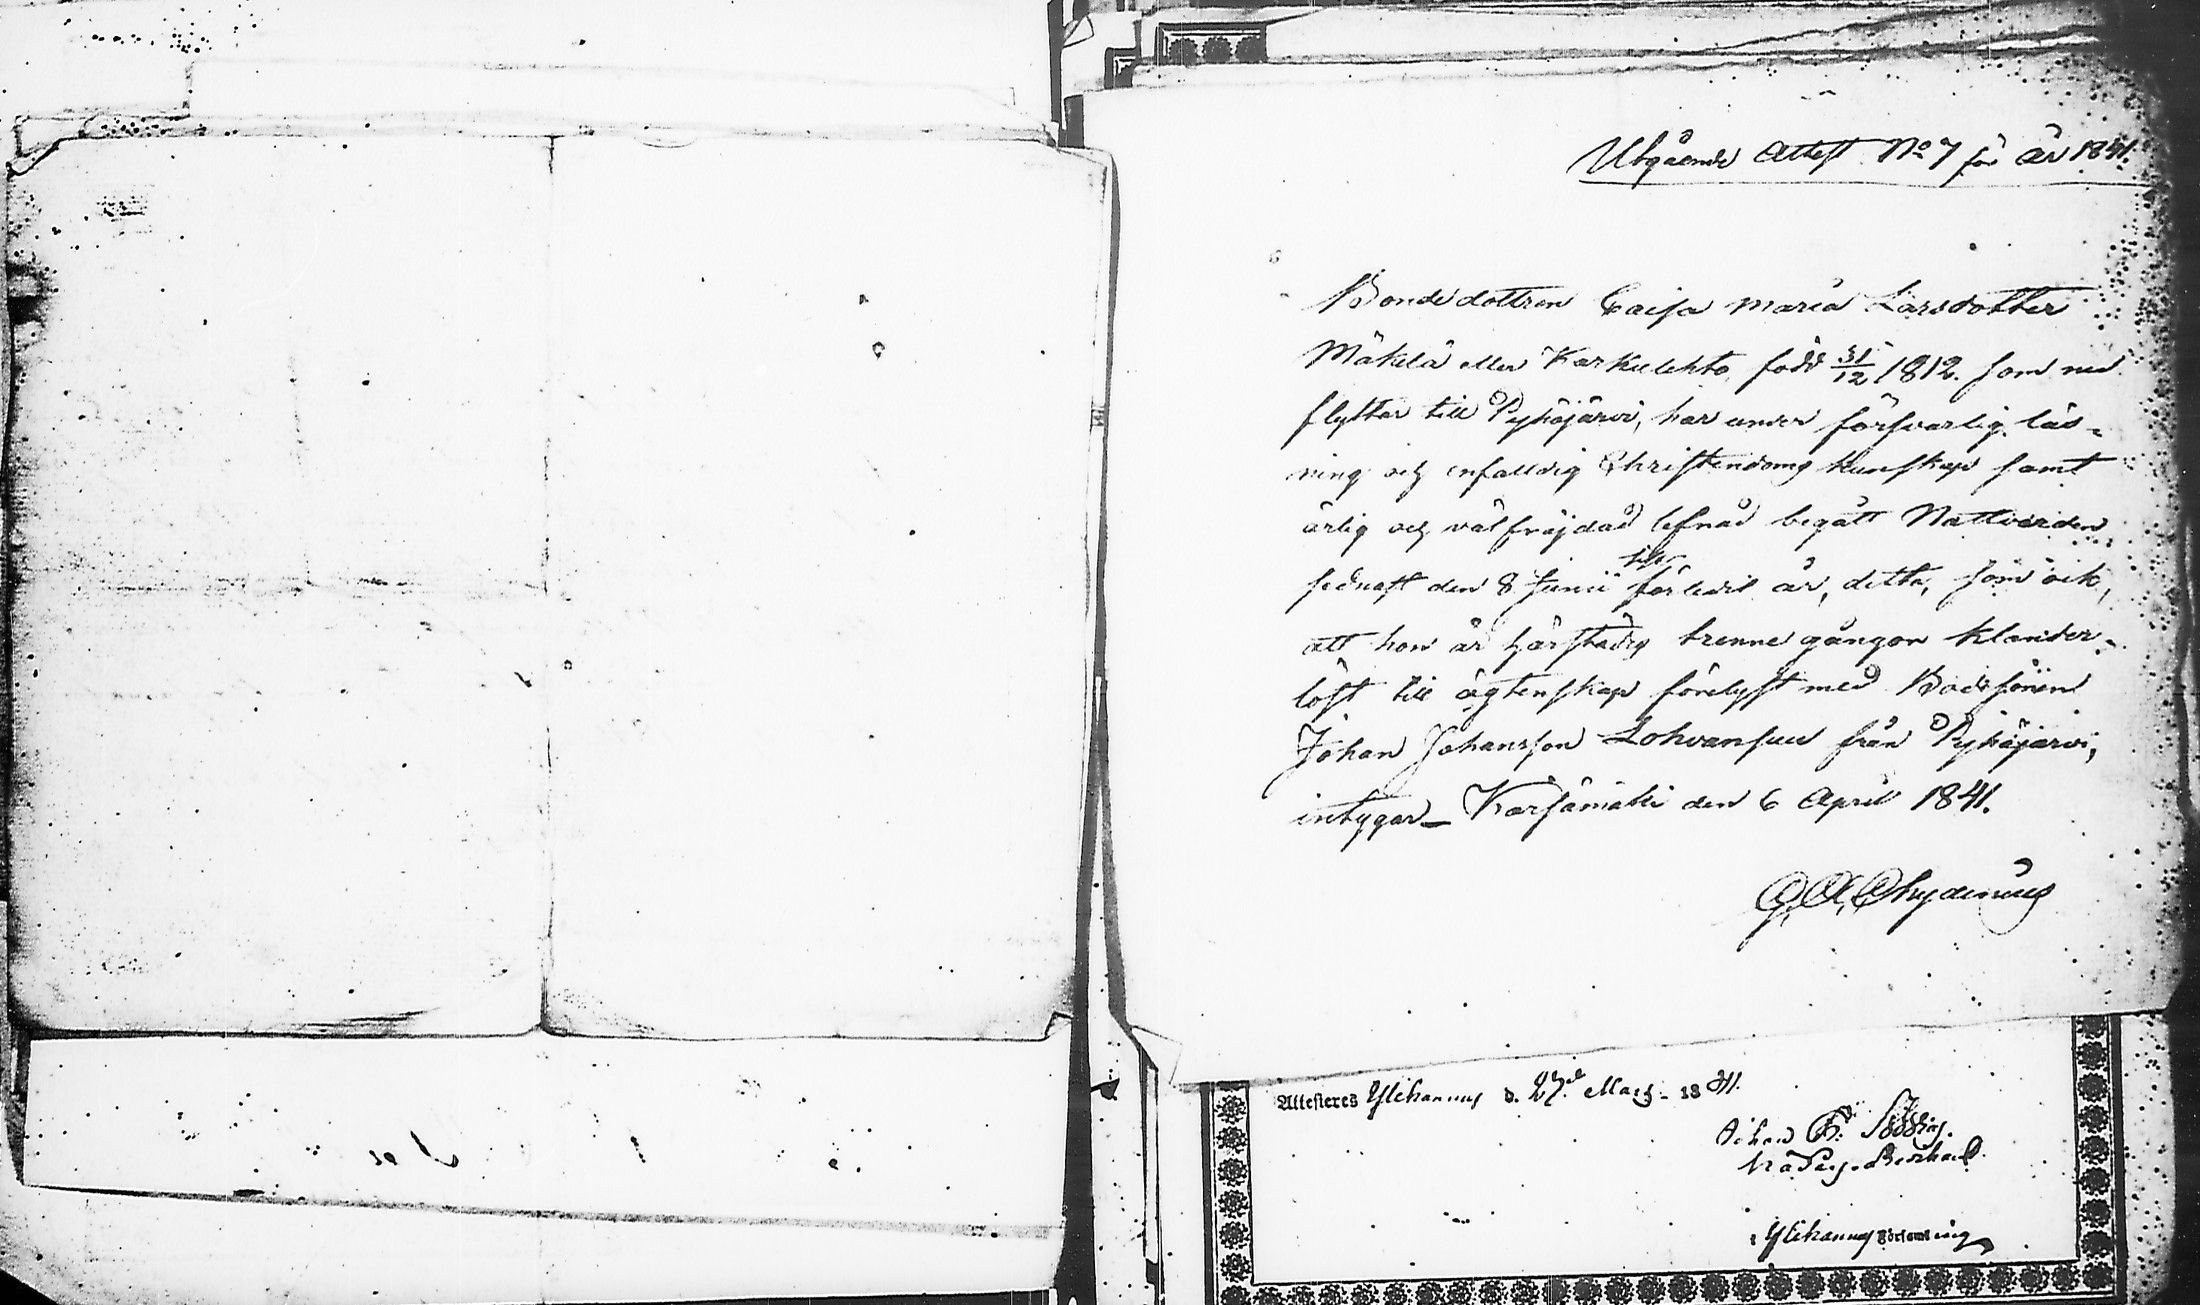 Utgående Attest No 7 för år 1841.
Bondedottren Caisa Maria Larsdotter
Mäkelä eller Karkulehto, född 31/12 1812. som nu
flyttar till Pyhäjärvi, har under försvarlig läs-
ning och enfaldig Christendoms kunskap samt
ärlig och välfräjdad lefnad begått Nattvarden
sednast den 8 Junii förledit år, detta, som ock,
att hon är härstädes trenne gångor klander-
löst till ägtenskap förelyst med Bondsonen
Johan Johansson Lohvansuu från Pyhäjärvi,
intygar _ Kärsämäki den 6 April 1841.
G. A. Chydenius
Attesteres Ylikannus d. 27de Mars 1841.
Johan
Ylikannus Församling